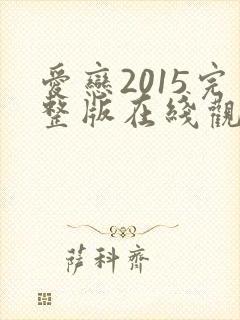 愛戀2015完
整版在綫觀
萨科齊